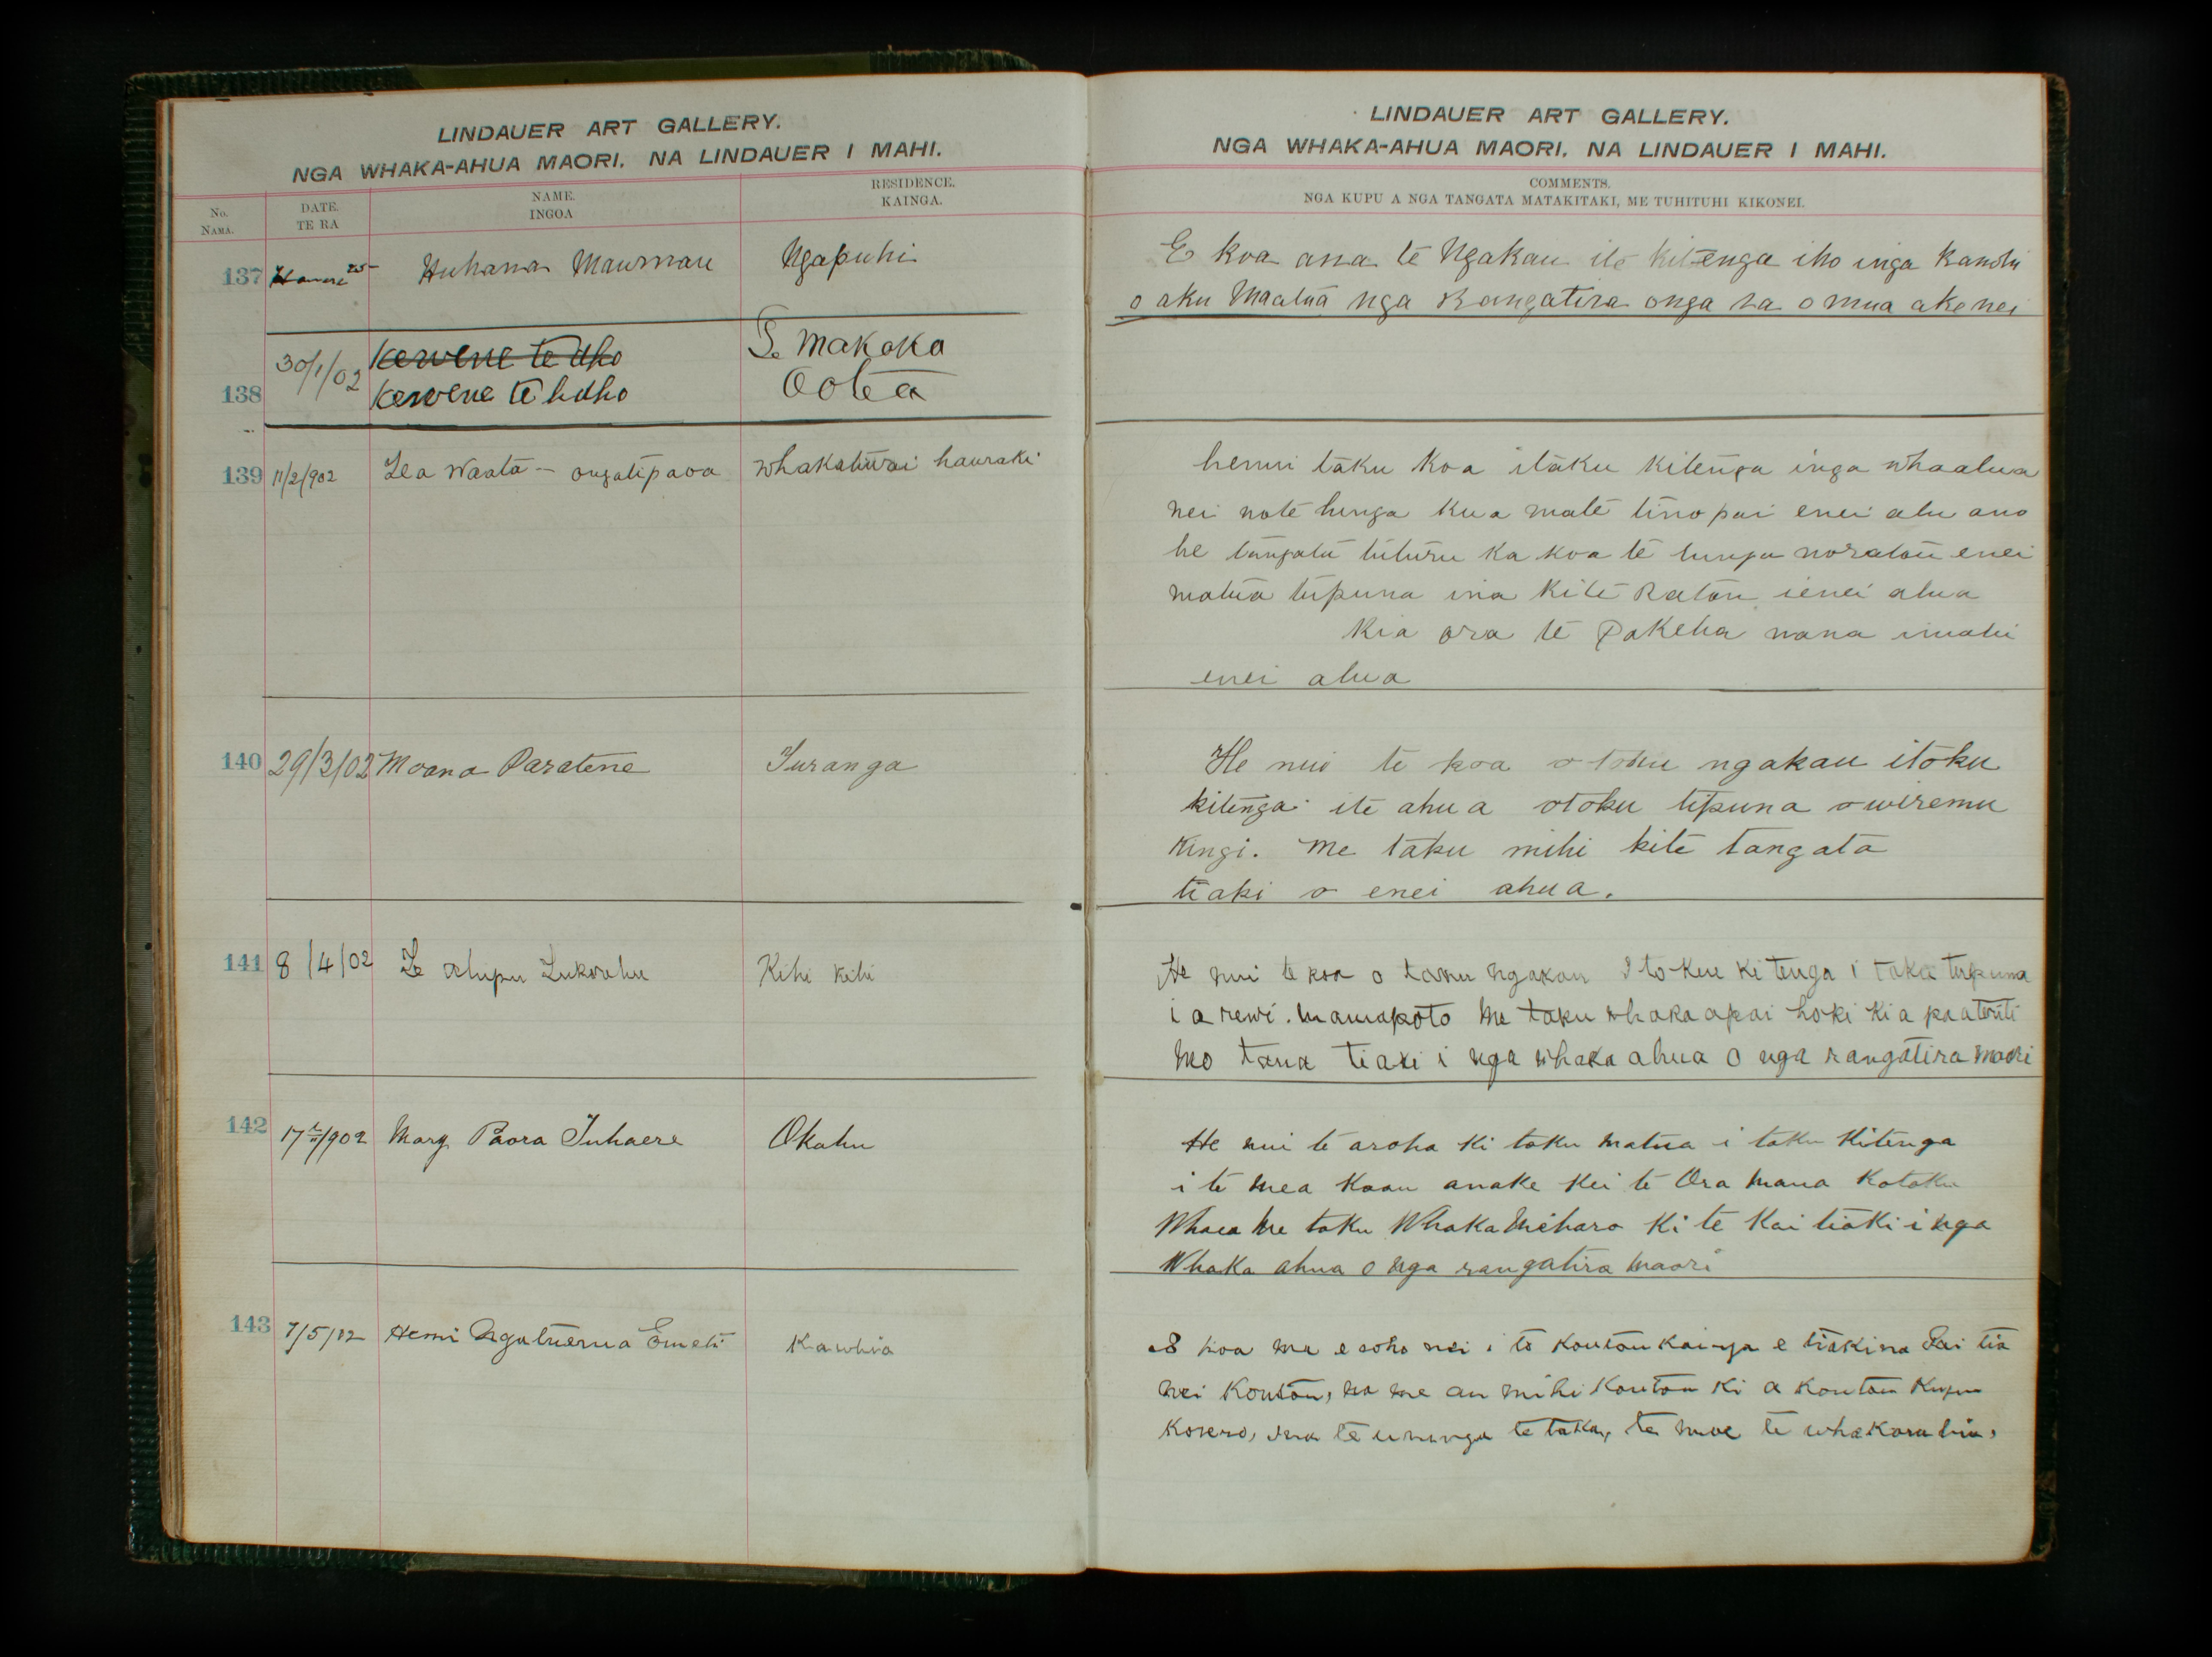 LINDAUER ART GALLERY.
NGA WHAKA-AHUA MAORI. NA LINDAUER I MAHI.
No.
NAMA.
DATE.
TE RA
NAME.
INGOA
RESIDENCE.
KAINGA.
137 25 Huhana Maumau Ngapuhi
30/1/02 Te Makaka
138 Kerene te Aotea
139 11/2/902 Waata - ongatipaoa whakatiwai hauraki
140 29/3/02 Moana Paratene Turanga
141 8/4/02 Te Kihi Kihi
142 17 /902 Mary Paora Tuhaere Okahu
143 7/5/02 Hemi Kawhia
LINDAUER ART GALLERY.
NGA WHAKA-AHUA MAORI. NA LINDAUER I MAHI.
COMMENTS.
NGA KUPU A NGA TANGATA MATAKITAKI, ME TUHITUHI KIKONEI.
E koa ana te Ngakau ite kitenga iho inga kanohi
o aku Maatua nga Rangatira onga ra o mua ake nei
henui taku koa itaku kitenga inga whaahua
nei note hunga kua mate tino pai enei ahu ano
he tangata tuturu ka koa te hunga noratou enei
matua tupuna ina kite ratou ienei ahua
Kia ora te Pakeha nana imahi
enei ahua
He nui te koa o toku ngakau itoku
kitenga ite ahua otoku tipuna owiremu
Kingi. Me taku mihi kite tangata
tiaki o enei ahua.
He nui te koa o taku ngakau I tokue kitenga i taku tupuna
i a rewi. mamapoto me taku whakaapai hoki ki a paatoriti
mo tana tiaki i nga whaka ahua o nga rangatira maori
He nui te aroha ki toku matua i taku Kitenga
i te mea koau anake kei te Ora mana kotoku
Whaea me toku Whakamiharo ki te Kai tiaki i nga
Whaka ahua o nga rangatira maori
E hoa ma e noho nei i to koutou kainga e tiakina
nei Koutou, na me au mihi koutou ki a koutou Kupu
Korero, te te takau, te moe te